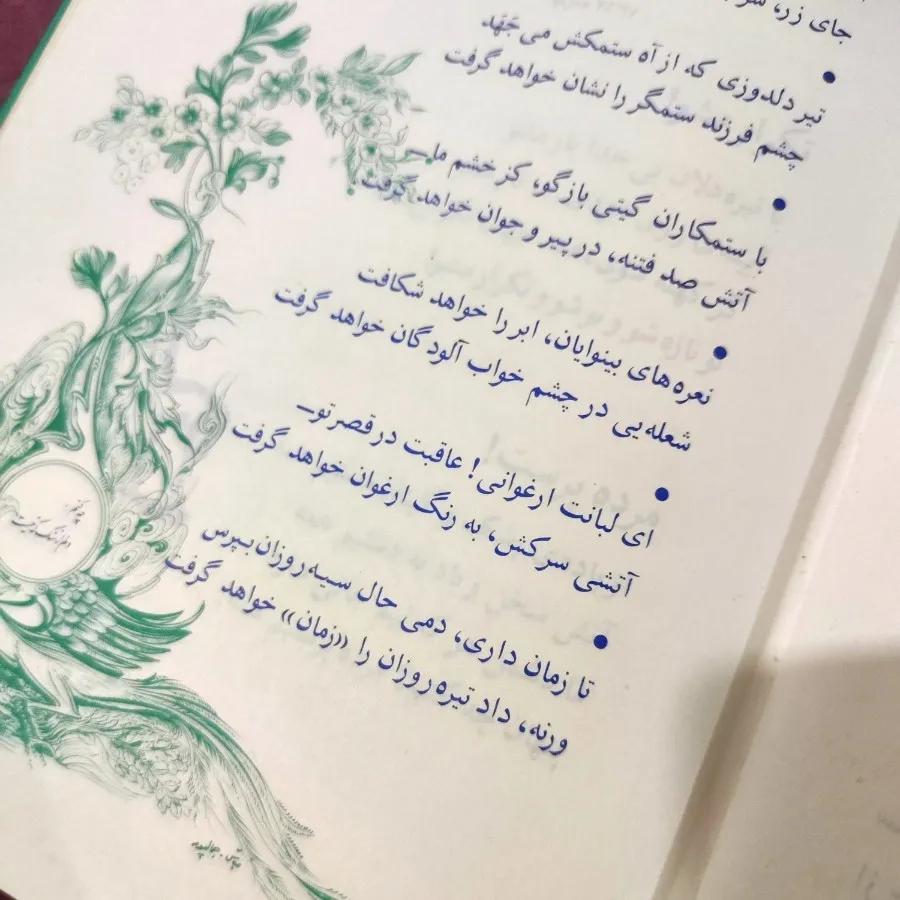 جای زر، سر
تیر دلدوزی که از آه ستمکش می‌جَهَد
چشم فرزند ستمگر را نشان خواهد گرفت
با ستمکاران گیتی بازگو، کز خشم ما ـ
آتش صد فتنه، در پیر و جوان خواهد گرفت.
نعره‌های بینوایان، ابر را خواهد شکافت
شعله‌یی در چشم خواب آلودگان خواهد گرفت
ای لبانت ارغوانی! عاقبت در قصر تو ـ
آتشی سرکش، به رنگ ارغوان خواهد گرفت
تا زمان داری، دمی حال سیه روزان بپرس
ورنه، داد تیره روزان را «زمان» خواهد گرفت